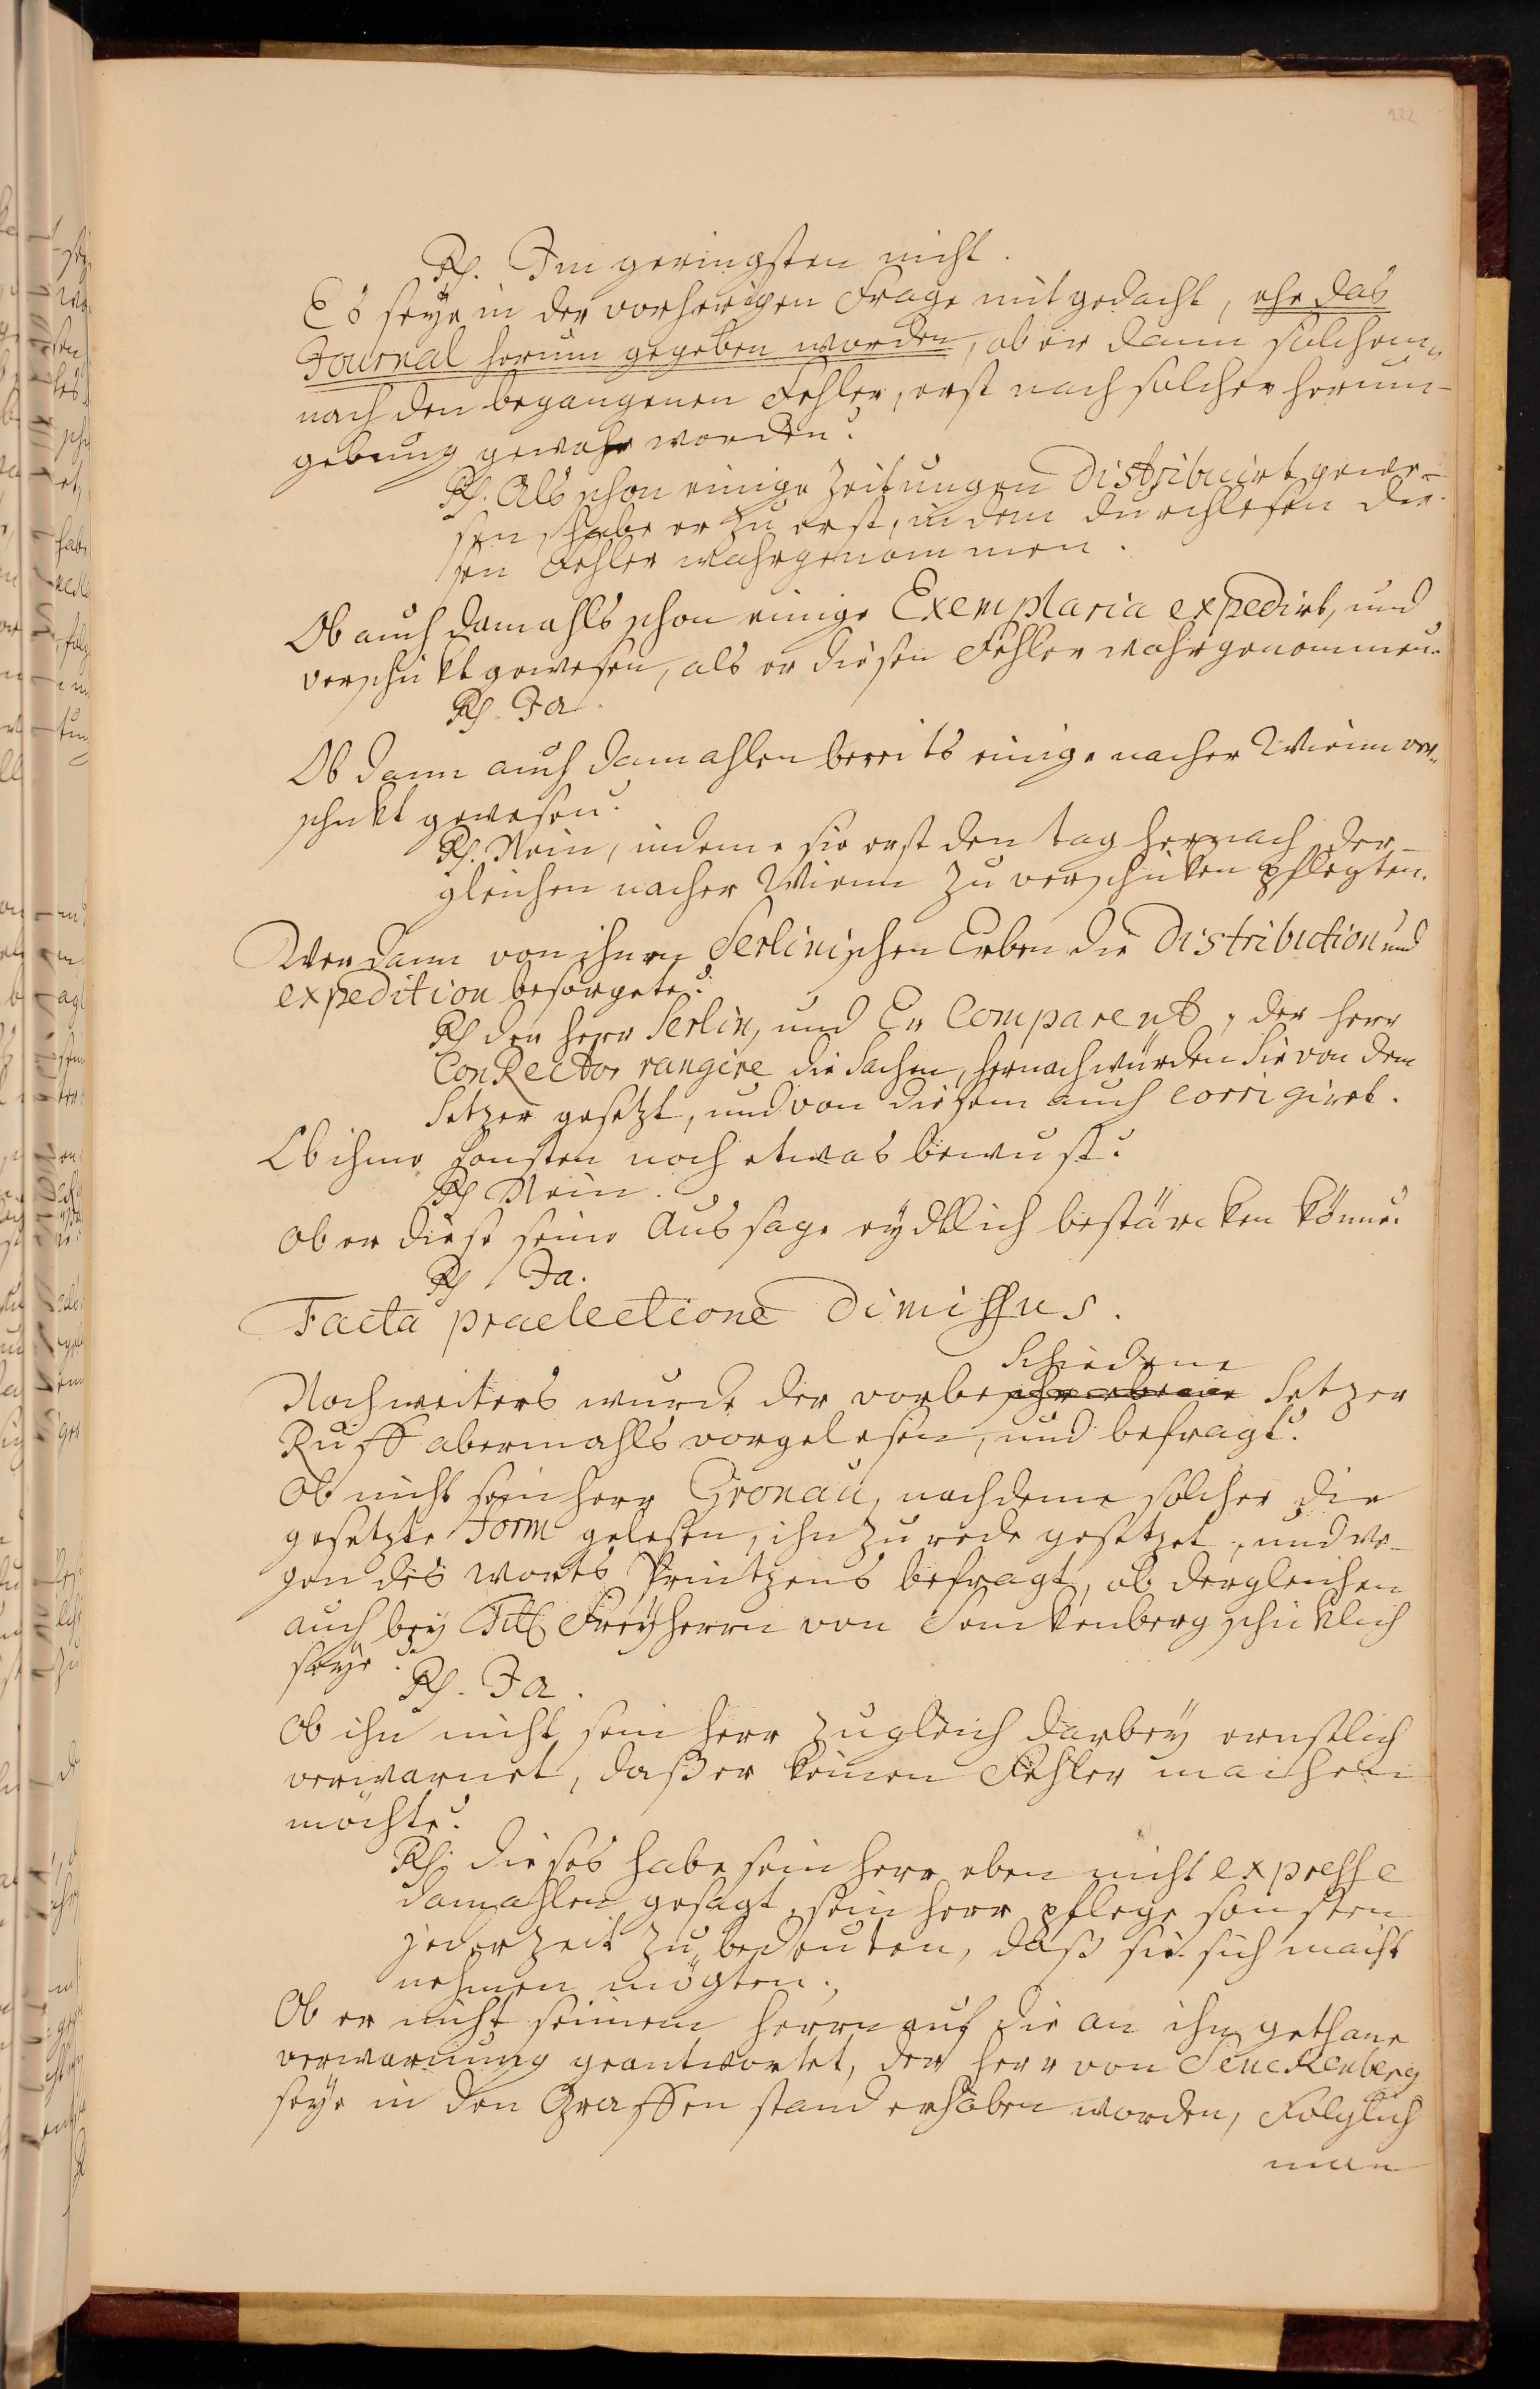 222
Rs. Im geringsten nicht.
Es seye in der vorherigen Frage mit gedacht, ehe das
Journal herum gegeben worden, ob er dann solchem„
nach den begangenen Fehler, erst nach solcher herum-
gebung gewahr worden?
Rs. Als schon einige Zeitungen distribuirt gewe-
sen, habe er zu erst, in dem durchlesen die-
sen Fehler wahrgenommen.
Ob auch damahls schon einige Exemplaria expedirt, und
verschickt gewesen, als er diesen Fehler wahrgenommen?
Rs. Ja.
Ob dann auch damahlen bereits einige nacher Wienn ver„
schickt gewesen?
Rs. Nein, indeme sie erst den tag hernach der-
gleichen nacher Wienn zu verschicken pflegten.
Wer dann von ihnen Serlinischen Erben die Distribution und
expedition besorgete?
Rs der Herr Serlin, und Er Comparent, der Herr
ConRector rangire die Sachen, hernach würden Sie von dem
Setzer gesetzt, und von diesem auch corrigirt.
Ob ihme sonsten noch etwas bewust?
Rs Nein.
Ob er diese seine Aussage eydtlich bestärcken könne?
Rs Ja.
Facta praelectione dimissus.
schiedene
Noch weiters wurde der vorbeschriebene Setzer
Ruff abermahls vorgelesen, und befragt?
Ob nicht sein Herr Gronau, nachdeme solcher die
gesetzte Form gelesen, ihn zu rede gesetzet, und we-
gen des worts Printzens befragt, ob dergleichen
auch bey Titl Freyherrn von Senckenberg schicklich
seye?
Rs. Ja.
Ob ihn nicht sein Herr zugleich darbey ernstlich
verwarnet, daß er keinen Fehler machen
möchte?
Rs: dieses habe sein Herr eben nicht expresse
damahlen gesagt, sein Herr pflege sonsten
jederzeit zu bedeuten, daß sie sich in acht
nehmen mögten.
Ob er nicht seinem Herrn auf die an ihn gethane
verwarnung geantwortet, der Herr von Senckenberg
seye in den Graffen stand erhoben worden, Folglich
man